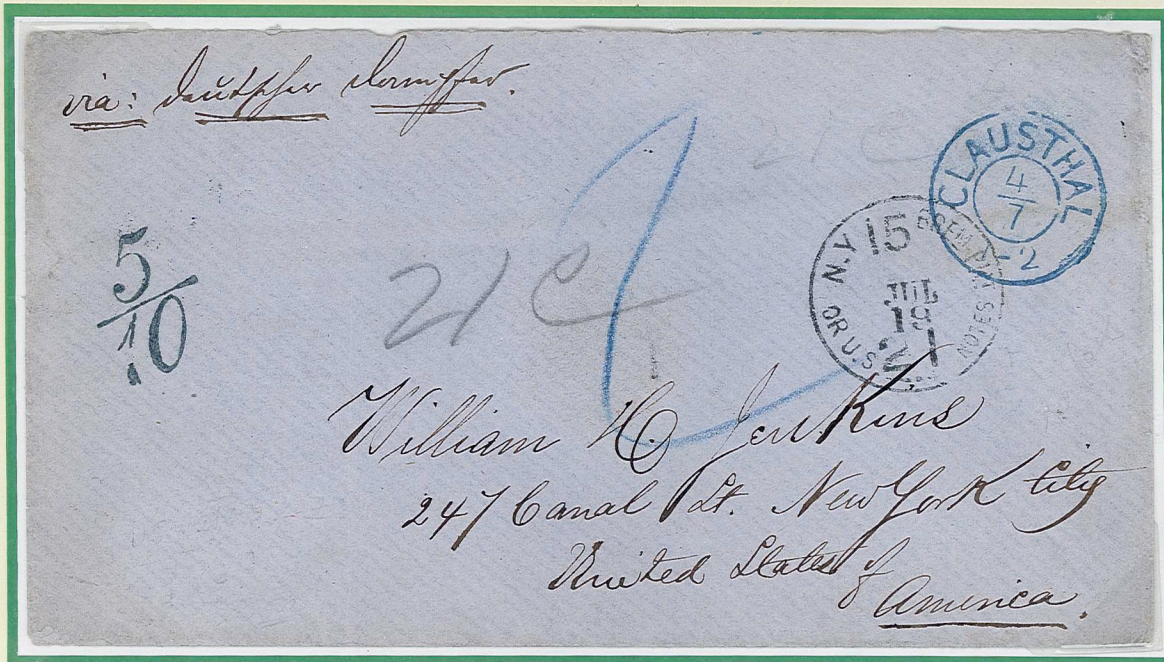 via: deutscher Dampfer.
CLAUSTHAL
4
7
-2
N.Y. 15
JUL
19
21
OR U.S. NOTES
5
10
21 C
William H. Jenkins
247 Canal St. New York City
United States of
America.